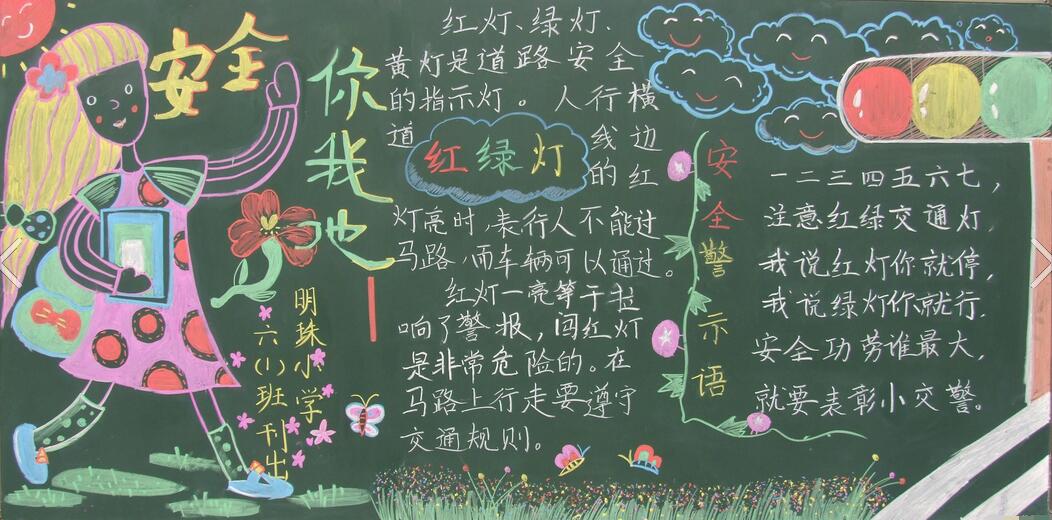 安全
你
我
他
明珠小学
六(1)班刊出
红灯、绿灯、
黄灯是道路安全
的指示灯。人行横
道
线边
红绿灯
的红
灯亮时,表行人不能过
马路,而车辆可以通过。
红灯一亮等于拉
响了警报,闯红灯
是非常危险的。在
马路上行走要遵守
交通规则。
安全警示语
一二三四五六七,
注意红绿交通灯,
我说红灯你就停,
我说绿灯你就行.
安全功劳谁最大,
就要表彰小交警。